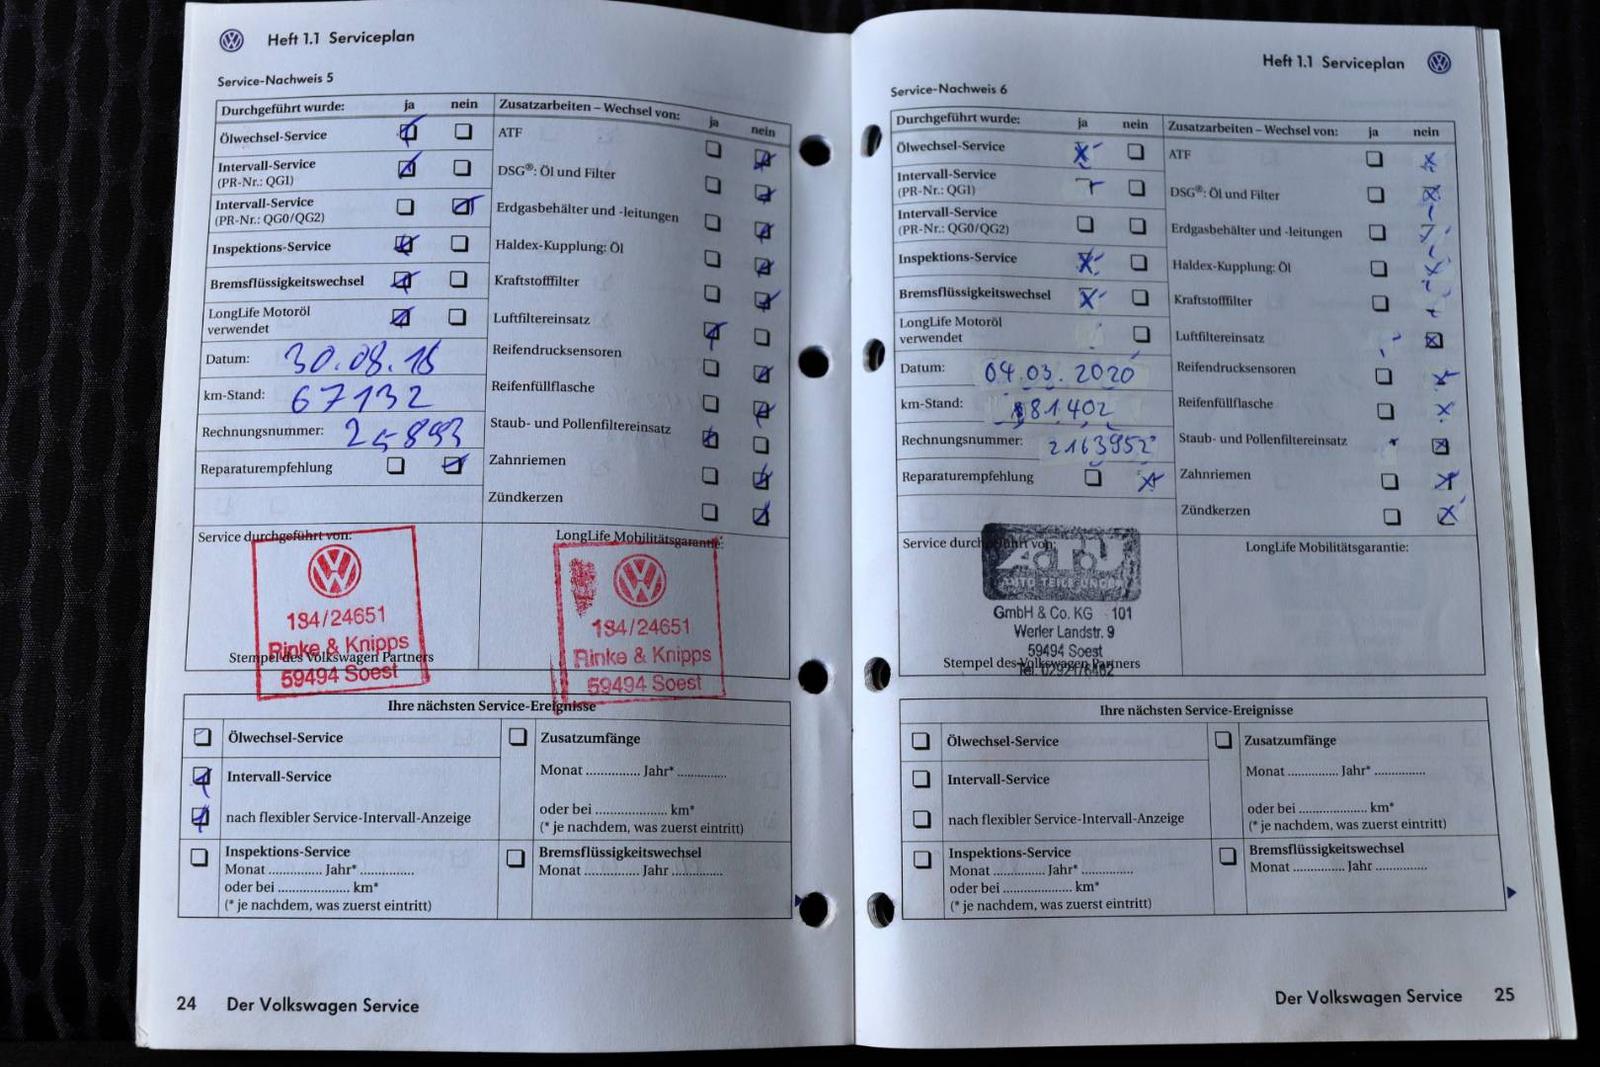 Heft 1.1 Serviceplan
Service-Nachweis 5
Durchgeführt wurde: ja nein
Ölwechsel-Service
Intervall-Service
(PR-Nr.: QG1)
Intervall-Service
(PR-Nr.: QG0/QG2)
Inspektions-Service
Bremsflüssigkeitswechsel
LongLife Motoröl
verwendet
Datum: 30.08.16
km-Stand: 67132
Rechnungsnummer:
Reparaturempfehlung
Zusatzarbeiten – Wechsel von: ja nein
ATF
DSG®: Öl und Filter
Erdgasbehälter und -leitungen
Haldex-Kupplung: Öl
Kraftstofffilter
Luftfiltereinsatz
Reifendrucksensoren
Reifenfüllflasche
Staub- und Pollenfiltereinsatz
Zahnriemen
Zündkerzen
Service durchgeführt von:
184/24651
Rinke & Knipps
59494 Soest
Stempel des Volkswagen Partners
LongLife Mobilitätsgarantie:
184/24651
Rinke & Knipps
59494 Soest
Ihre nächsten Service-Ereignisse
Ölwechsel-Service
Intervall-Service
nach flexibler Service-Intervall-Anzeige
Inspektions-Service
Monat ............... Jahr* ...............
oder bei .................... km*
(* je nachdem, was zuerst eintritt)
Zusatzumfänge
Monat ............... Jahr* ...............
oder bei .................... km*
(* je nachdem, was zuerst eintritt)
Bremsflüssigkeitswechsel
Monat ............... Jahr ...............
24 Der Volkswagen Service
Heft 1.1 Serviceplan
Service-Nachweis 6
Durchgeführt wurde: ja nein
Ölwechsel-Service
Intervall-Service
(PR-Nr.: QG1)
Intervall-Service
(PR-Nr.: QG0/QG2)
Inspektions-Service
Bremsflüssigkeitswechsel
LongLife Motoröl
verwendet
Datum: 04.03.2020
km-Stand: 81.402
Rechnungsnummer: 2163952
Reparaturempfehlung
Zusatzarbeiten – Wechsel von: ja nein
ATF
DSG®: Öl und Filter
Erdgasbehälter und -leitungen
Haldex-Kupplung: Öl
Kraftstofffilter
Luftfiltereinsatz
Reifendrucksensoren
Reifenfüllflasche
Staub- und Pollenfiltereinsatz
Zahnriemen
Zündkerzen
Service durchgeführt von:
A.T.U
AUTO TEILE UNGER
GmbH & Co. KG 101
Werler Landstr. 9
59494 Soest
Stempel des Volkswagen Partners
LongLife Mobilitätsgarantie:
Ihre nächsten Service-Ereignisse
Ölwechsel-Service
Intervall-Service
nach flexibler Service-Intervall-Anzeige
Inspektions-Service
Monat ............... Jahr* ...............
oder bei .................... km*
(* je nachdem, was zuerst eintritt)
Zusatzumfänge
Monat ............... Jahr* ...............
oder bei .................... km*
(* je nachdem, was zuerst eintritt)
Bremsflüssigkeitswechsel
Monat ............... Jahr ...............
Der Volkswagen Service 25